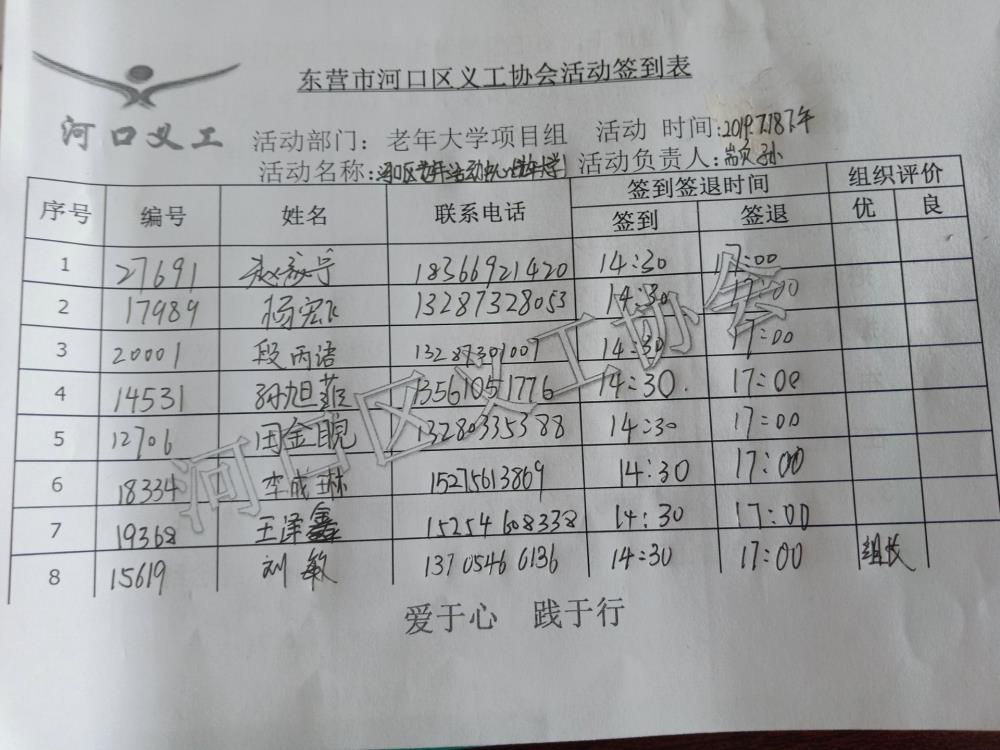 东营市河口区义工协会活动签到表
河口义工
活动部门：老年大学项目组 活动 时间:2019.7.18下午
活动名称:河口区老年活动中心(老年大学) 活动负责人:
序号 编号 姓名 联系电话 签到签退时间 组织评价
签到 签退 优 良
1 27691 赵 宁 18366921420 14:30 17:00
2 17989 杨宏飞 13287328053 14:30 17:00
3 20001 段丙语 13287301007 14:30 17:00
4 14531 孙旭 13561051776 14:30. 17:00
5 12706 田金靓 13280335388 14:30 17:00
6 18334 李成琳 15275613869 14:30 17:00
7 19368 王泽鑫 15254608338 14:30 17:00
8 15619 刘敏 13705466136 14:30 17:00 组长
爱于心 践于行
河口区义工协会